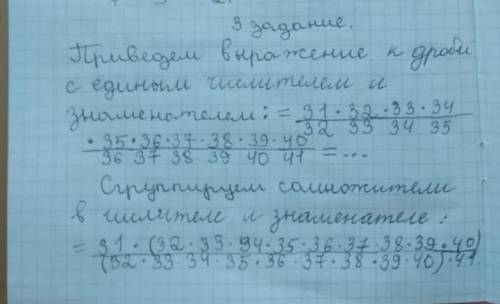 3 задание.
Приведем выражение к дроби
с единым числителем и
знаменателем: = 31 · 32 · 33 · 34
32 33 34 35
· 35 · 36 · 37 · 38 · 39 · 40
36 37 38 39 40 41 = ...
Сгруппируем сомножители
в числителе и знаменателе:
= 31 · (32 · 33 · 34 · 35 · 36 · 37 · 38 · 39 · 40)
(32 · 33 34 · 35 · 36 · 37 · 38 · 39 · 40) · 41